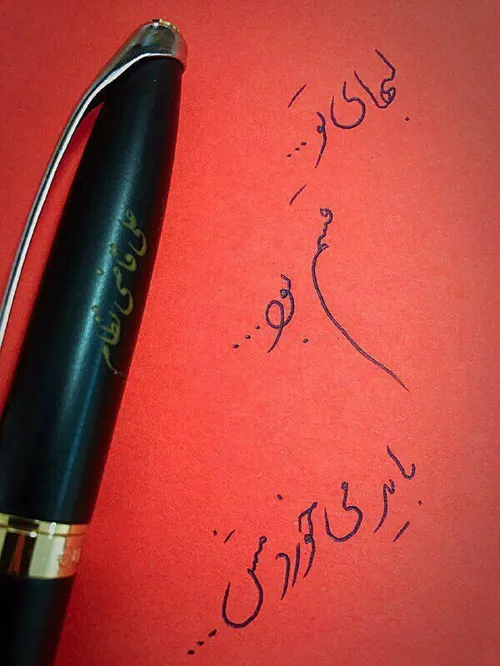 لبهای تو...
قسم بود...
باید می خوردمش...
علی قاضی نظام